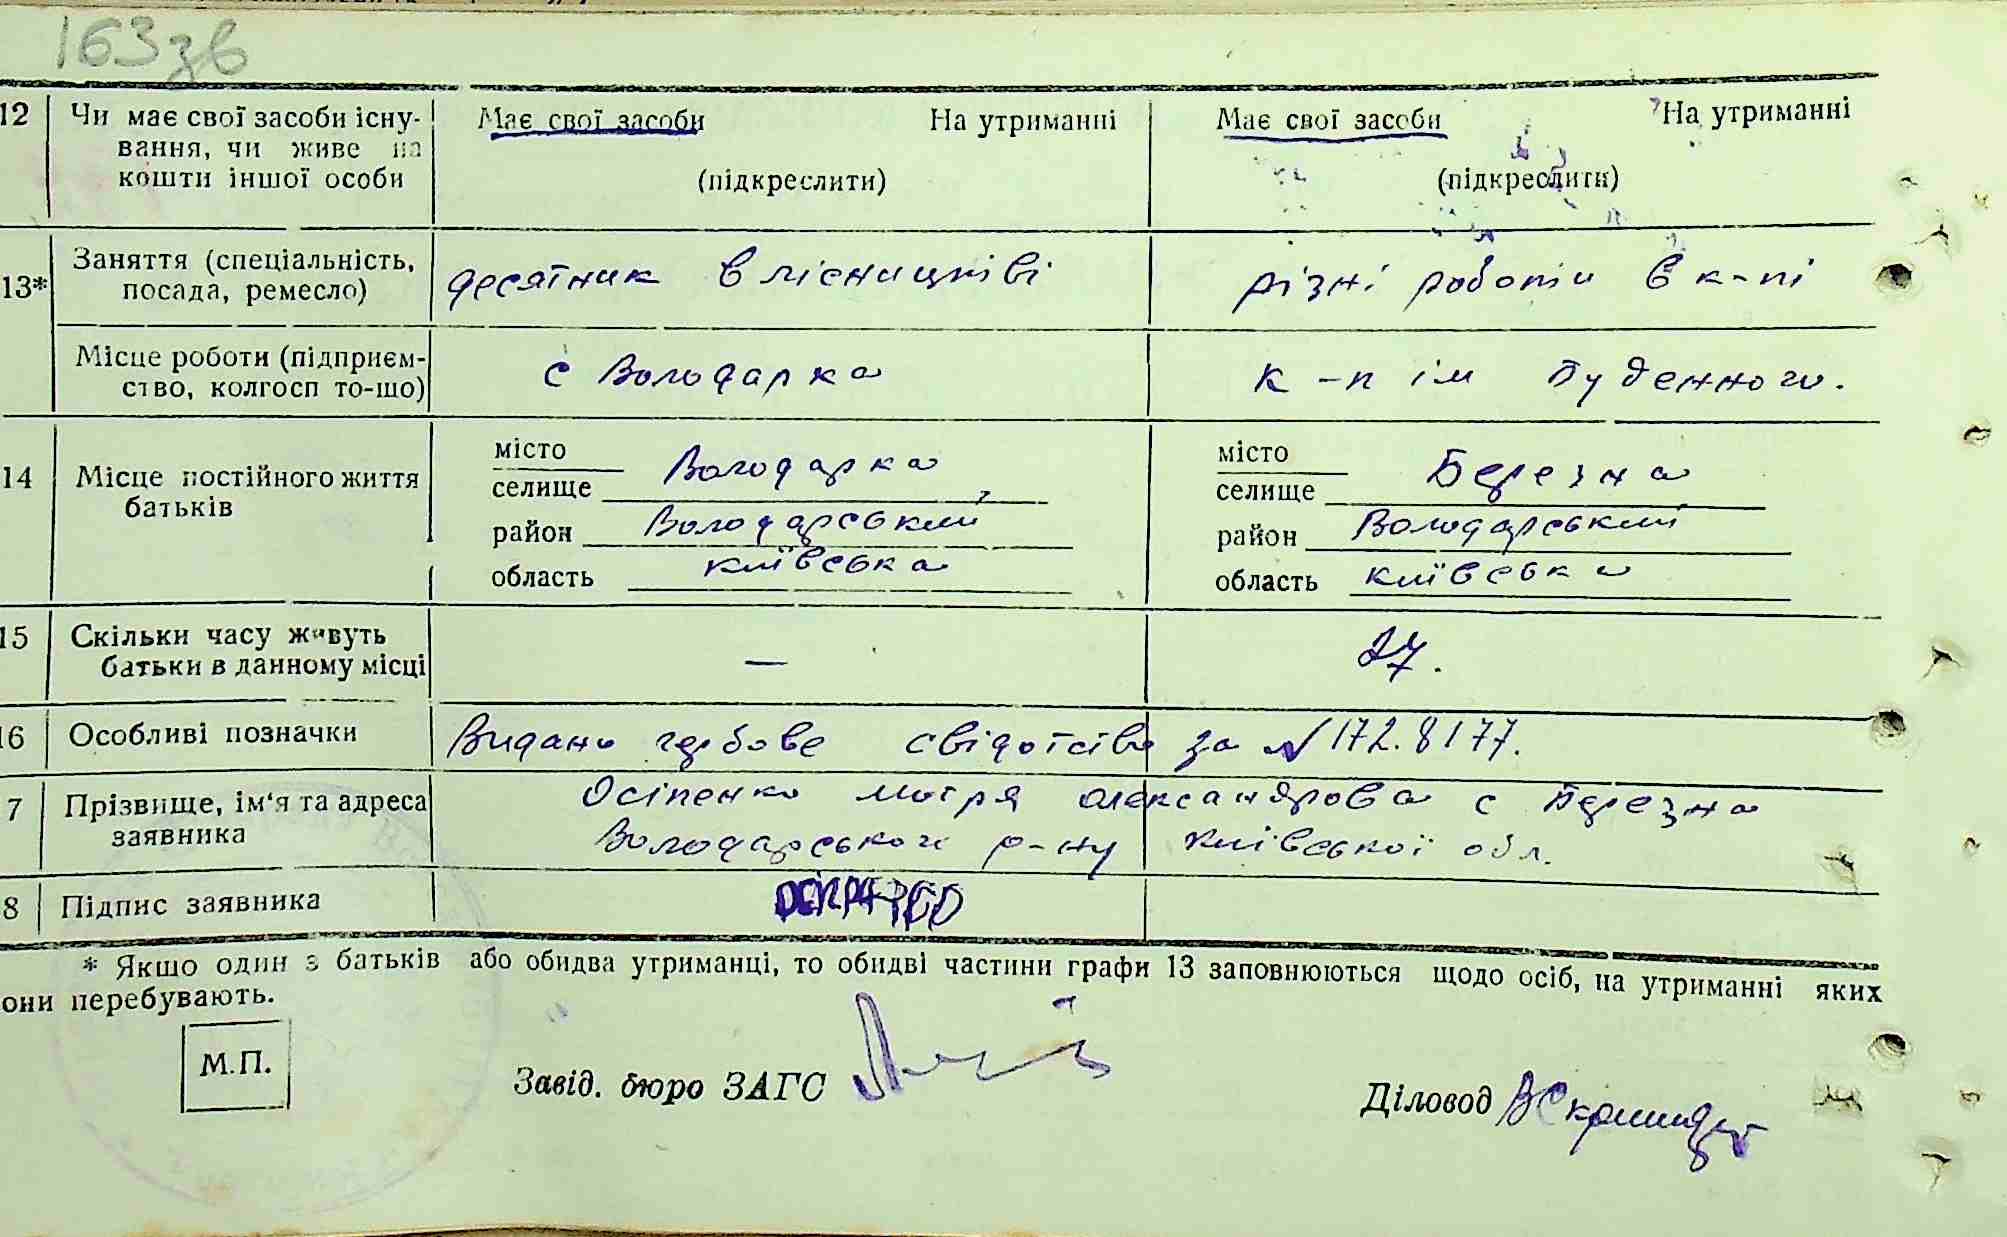 163 зв
12 Чи має свої засоби існу- Має свої засоби На утриманні Має свої засоби На утриманні
вання, чи живе на
кошти іншої особи (підкреслити) (підкреслити)
13* Заняття (спеціальність, десятник в лісництві різні роботи в к-пі
посада, ремесло)
Місце роботи (підприєм- с Володарка к-п ім Буденного.
ство, колгосп то-що)
14 Місце постійного життя місто Володарка місто Березна
батьків селище селище
район Володарський район Володарський
область київська область київська
15 Скільки часу живуть — 27.
батьки в данному місці
16 Особливі позначки Видано гербове свідотство за N 172.8177.
7 Прізвище, ім'я та адреса Осіпенко Мотря Олександрова с Березна
заявника Володарського р-ну Київської обл.
8 Підпис заявника
* Якшо один з батьків або обидва утриманці, то обидві частини графи 13 заповнюються щодо осіб, на утриманні яких
они перебувають.
М.П.
Завід. бюро ЗАГС
Діловод